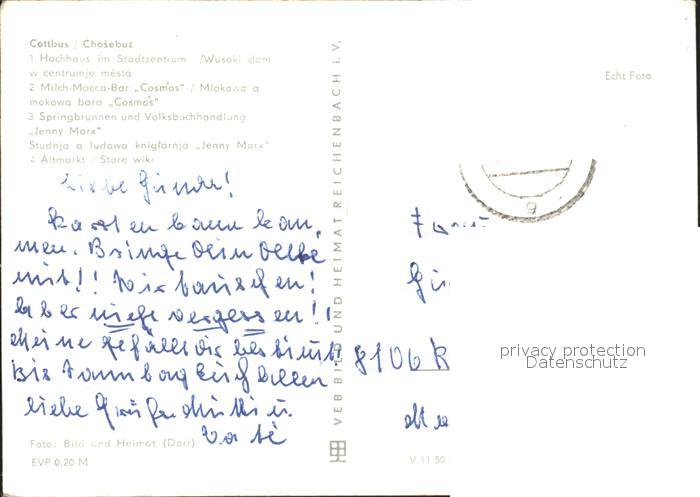 Cottbus / Chośebuz
1 Hochhaus im Stadtzentrum /Wusoki dom
w centrumje města
2 Milch-Mocca-Bar „Cosmos" / Mlokowa a
mokowa bara „Cosmos"
3 Springbrunnen und Volksbuchhandlung
„Jenny Marx"
Studnja a ludowa kniglarnja „Jenny Marx"
4 Altmarkt / Stare wiki
Liebe
kann kom,
men. Bringe Dein
mit!! Wir tauschen!
Aber nicht vergessen!!
Meine gefällt dir bestimmt!
Bis Euch allen
liebe Grüße Mutti u.
Vati
Foto: Bild und Heimat (Darr)
EVP 0,20 M
VEB BILD UND HEIMAT REICHENBACH i. V.
Echt Foto
9
8106 R
V 11 50
privacy protection
Datenschutz